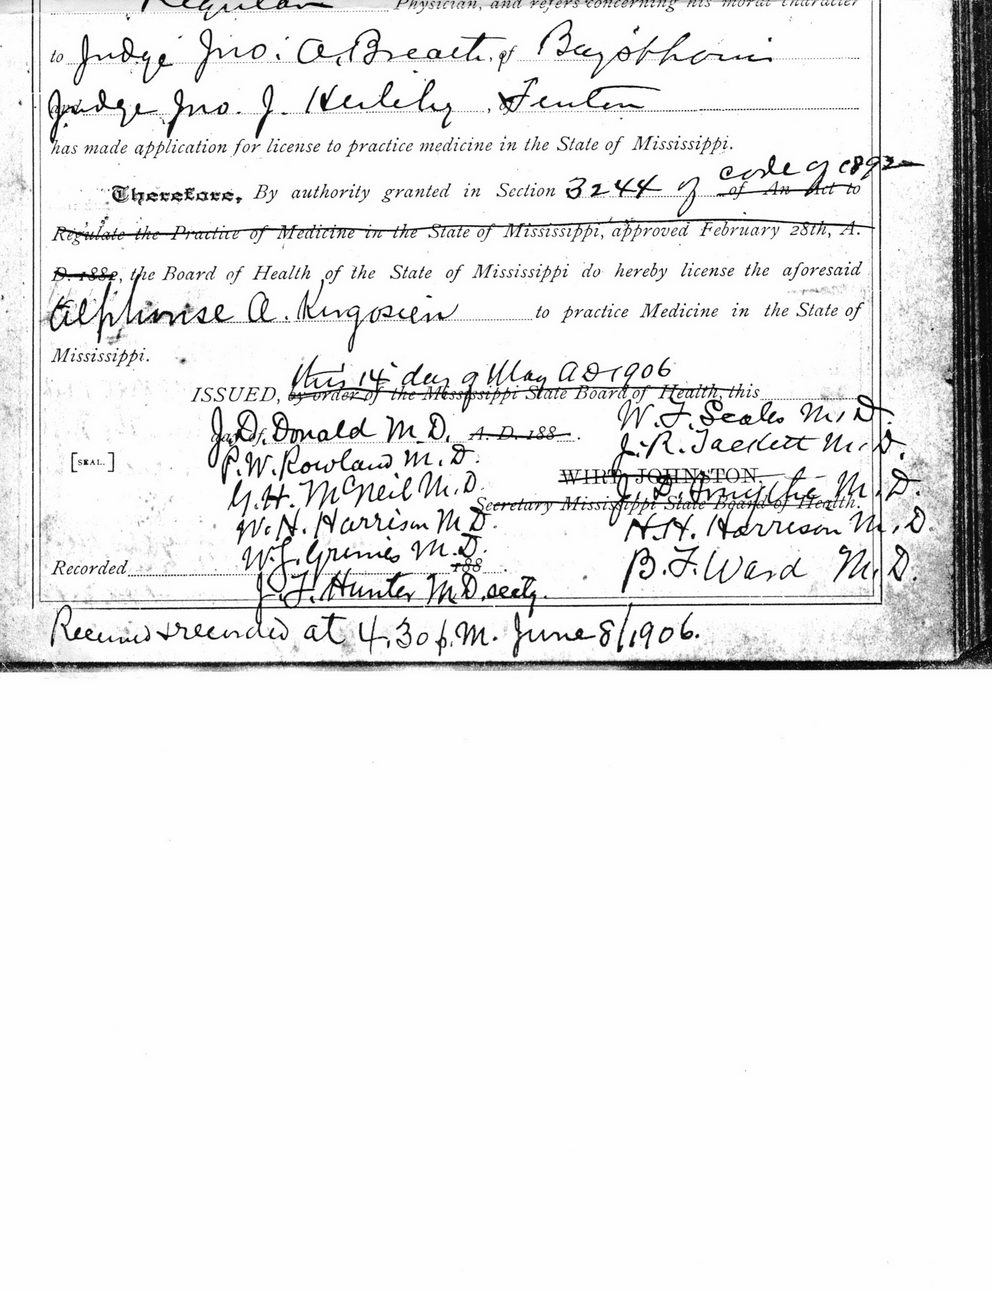 Regular Physician, and refers concerning his moral character
to Judge Jno. A. Breath, of Bay St Louis
Judge Jno. J. Heileby, Fenton
has made application for license to practice medicine in the State of Mississippi.
code of 1892
Therefore, By authority granted in Section 3244 of of An Act to
Regulate the Practice of Medicine in the State of Mississippi, approved February 28th, A.
D. 1882, the Board of Health of the State of Mississippi do hereby license the aforesaid
Alphonse A. Kergosien to practice Medicine in the State of
Mississippi.
this 14 day of May AD 1906
ISSUED, by order of the Mississippi State Board of Health, this
W. F. Seales M.D.
J. D. Donald M.D. A. D. 188 .
J. R. Tackett M.D.
P. W. Rowland M.D.
[SEAL.]
WIRT JOHNSTON,
G. H. McNeil M.D.
J. D. Smythe M.D.
Secretary Mississippi State Board of Health.
W. H. Harrison M.D.
H. H. Harrison M.D.
W. J. Grimes M.D.
Recorded 188 .
B. F. Ward M.D.
J. F. Hunter M.D. secty.
Received & recorded at 4,30 p.M. June 8/1906.